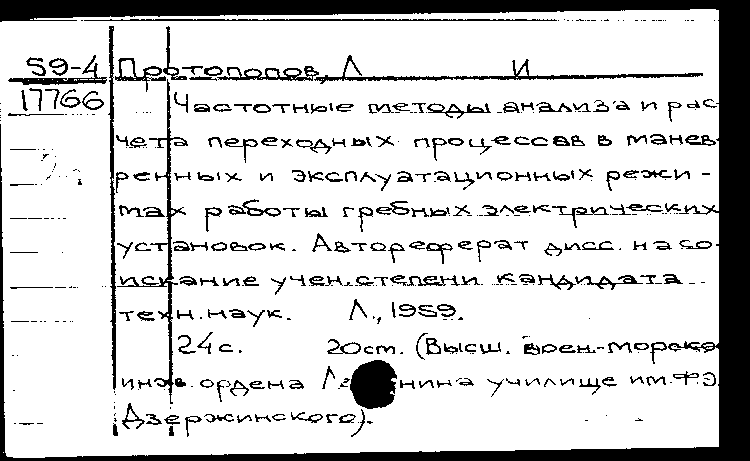 59-4 Протопопов, Л И
17766 Частотные методы анализа и рас-
чета переходных процессов в манев-
ренных и эксплуатационных режи-
мах работы гребных электрических
установок. Автореферат дисс. на со-
искание учен.степени кандидата
техн.наук. Л., 1959.
24с. 20см. (Высш. воен.-морско
инж. ордена нина училище им.Ф.Э.
Дзержинского).